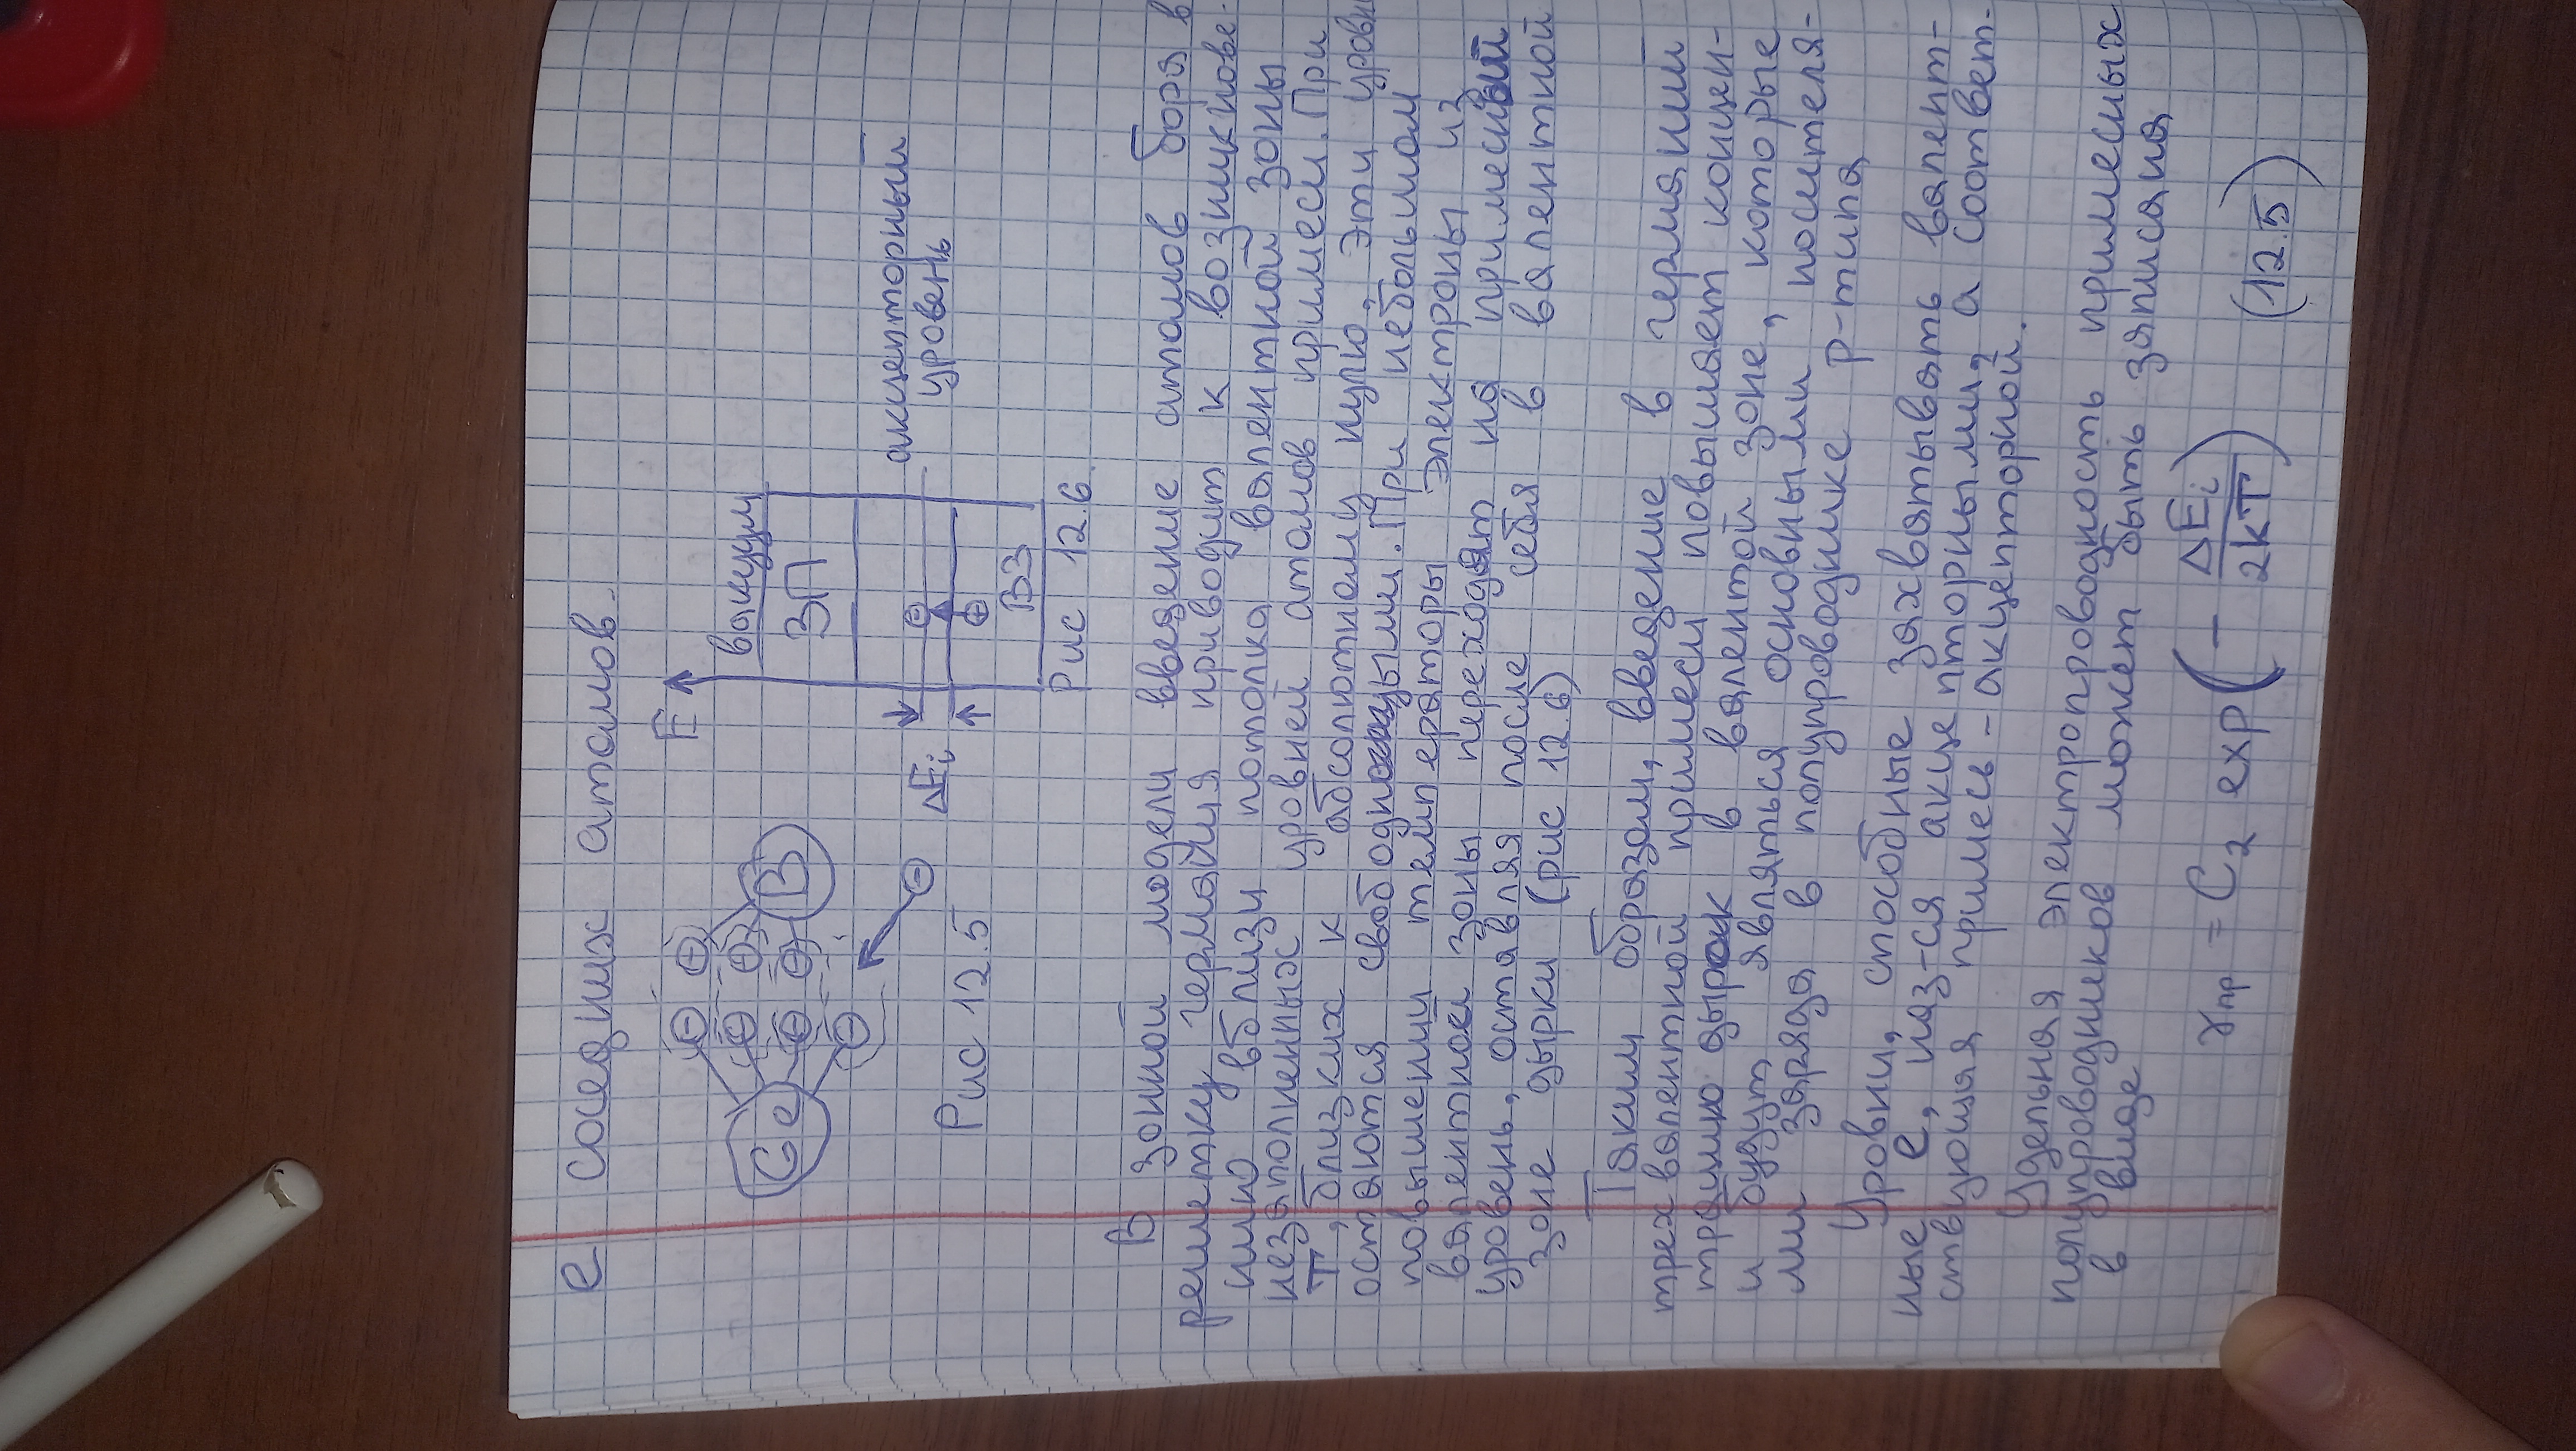 е соседних атомов.
Ge
B
Рис 12.5
E
вакуум
ЗП
ΔEi
акцепторный
уровень
ВЗ
Рис 12.6.
В зонной модели введение атомов бора в
решетку германия приводит к возникнове-
нию вблизи потолка валентной зоны
незаполненных уровней атомов примеси. При
T, близких к абсолютному нулю, эти уровни
остаются свободными. При небольшом
повышении температоры электроны из
валентной зоны переходят на примесный
уровень, оставляя после себя в валентной
зоне дырки (рис 12.6)
Таким образом, введение в германий
трехвалентной примеси повышает концен-
трацию дырок в валентой зоне, которые
и будут являться основными носителя-
ми заряда в полупроводнике p-типа
Уровни, способные захватывать валент-
ные е, наз-ся акцепторными, а соответ-
ствующая примесь - акцепторной.
Удельная электропроводность примесных
полупроводников может быть записана
в виде
γпр = C₂ exp(- ΔEi / 2kT) (12.5)